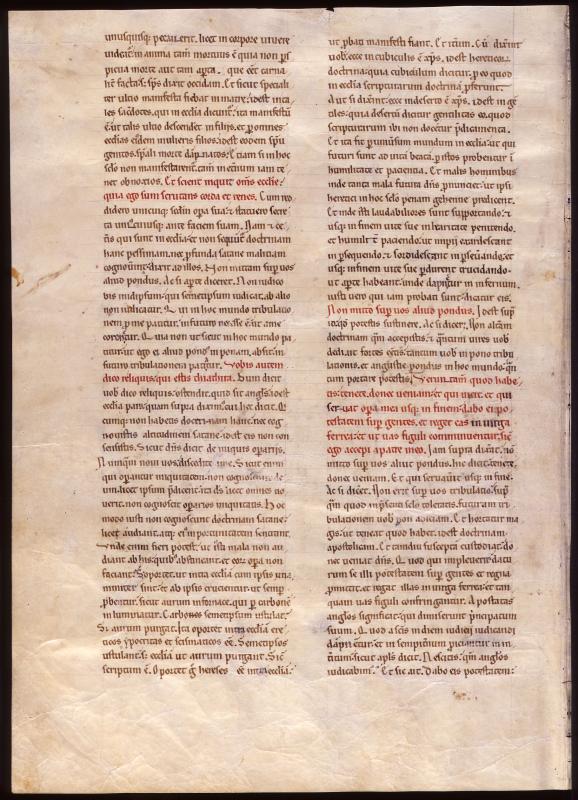 unusquisq; peccauerit. licet in corpore uiuere
uideat̄ in anima tam̄ mortuus ē quia non ꝑs
picua morte aut tam aꝑta.
hēc facta. sp̄s dixit occidam. Et sicut speciali
ter ultio manifesta fiebat in matre. id est in ta
les sacdotes. qui in ecclia dicunt. ita manifestū
ē. ut talis ultio descendet in filijs. et ꝑ omnes
ecclias eisdem mulieris filios. id est eodem spū
genitos. sp̄ali morte dāpnatos. Etiam si in hoc
sclo non manifestarent̄. tam̄ in et̄num iam te
net obnoxios. Et scient inquit om̄s ecclie.
quia ego sum scrutans corda et renes. Cum red
didero unicuiq; sedm opa sua. & statuero secre
ta uniuscuiusq; ante faciem suam. Nam & ce
t̄is qui sunt in ecclia et non sequūt̄ doctrinam
hanc pessimam. nec ꝓfunda satane malitiam
cognouīnt. dixit ad illos. Non mittam suꝑ uos
aliud pondus. Ac si aꝑte diceret. Non iudico
bis in id ipsum. qui semetipsum iudicat. ab alio
non iudicatur. Qui in hoc mundo tribulatio
nem ꝓ me patitur.
corrigitur. Quia non ut sicut in hoc mundo pa
titur. ut ego ei aliud pond' inponam. absit. in
futuro tribulationem patiat̄. Uobis autem
dico reliquis. qui estis thiathira. Dum dicit
uob dico reliquis. ostendit. quid sit angls. id est
ecclia parꝫ quam supra dixim. cui hec dicit. Q
cumq; non habetis doctrinam hanc. nec cog
nouistis altitudinem satane. id est eis non con
sensistis. Sicut dn̄s dicit de iniquis opariis.
Nunquam noui uos. discedite a me. Sicut enim
qui operantur iniquitatem. non cognoscunt de
um. licet ipsum p̄dicent. ita d̄s licet omnes no
uerit. non cognoscit operarios iniquitatis. Hoc
modo iusti non cognoscunt doctrinam satane.
licet audiant. atq; ei' inportunitatem sentiant.
Unde enim fieri potest. ut ista mala non au
diant ab his quib' abstineant. et ea. opa non
faciant. Si oportet ut intra ecclia cum ipsis una
nimiter sint. et ab ipsis crucientur. ut semꝑ
ꝓbentur. sicut aurum in fornace. qui ꝑ carbonē
inluminatur. Carbones semetipsum ustulat.
& aurum purgat. Ita oportet intra eccliam ere
ticos. ypocritas et scismaticos ēē. Semetipsos
ustulant. & eccliā ut aurum purgant. Sic
scriptum ē. Oportet ḡ hereses ēē intra eccliā.
ut ꝓbati manifesti fiant. Et itꝰum. Cū dixerint
uob. ecce in cubiculis ē xp̄s. id est hereticorꝫ
doctrina. quia cubiculum dicitur. ꝑ eo quod
in ecclia scripturarum doctrina ꝓferunt.
Aut si dixerit. ecce in deserto ē xp̄s. id est in gē
tiles. quia deserta dicitur gentilitas. eo quod
scripturarum ibi non docetur p̄dicamenta.
Et ita fit ꝑ uniūsum mundum in ecclia. ut qui
futuri sunt ad uitā beatā. ꝑ istos probentur ī
humilitate et patientia. Et malis hominibus
inde tanta mala futura dn̄s ꝓnuncietur. ut ipsi
heretici in hoc sclo penam gehenne predicent.
Et inde illi laudabiliores sunt supportando. &
usq; in finem uite sue in karitate penitendo.
et humilit̄ ē patiendo. ut impii exardescant
in ꝑsequendo. & sordidescant in ꝑseuāndo. et
usq; in finem uite sue ꝑdurent trucidando.
ut aꝑte habeant. unde dāpnēt̄ in infernum.
iusti uero qui iam probati sunt. dicatur eis.
Non mitto suꝑ uos aliud pondus. Id est suꝑ
id qd potestis sustinere. Ac si dicet. Non aliam
doctrinam quā accepistis. & quantum uires uob
dedi. aut fortes estis. tantum uob in pono tribu
lationis. et angustie pondus in hoc mundo. quā
tum portare potestis. Verum tam̄ quod habe
tis tenete. donec ueniam. et qui uicit. et qui
seruat opa mea usq; in finem. dabo ei po
testatem suꝑ gentes. et reget eas in uirga
ferrea. et ut uas figuli comminuentur. sic
ego accepi a patre meo. Iam supra dixerat. nō
mitto suꝑ uos aliud pondus. hic dicit. tenete
donec ueniam. Et qui seruauit usq; in fine.
Ac si dicet. Non erit suꝑ uos tribulatio. supꝑ
quā quod in p̄senti sclo toleratis. futuram tri
bulationem uob non adiciam. Et hortatur ma
gis. ut teneat quod habet. id est doctrinam
apostolicam. Et tamdiu suscepta custodiat. do
nec ueniat dn̄s. Quod qui impleuerit. datu
rum se illi potestatem suꝑ gentes et regna
ꝓmittit. et regat illas in uirga ferrea. et tan
quam uas figuli confringantur. Apostatas
anglos significat. qui dimiserunt p̄ncipatum
suum. Quod a sc̄is in diem iudicij iudicandi
dāpnētur. et in sempit̄num puniantur in in
fernum. sicut apl̄s dicit. Nescitis. qm̄ anglos
iudicabim'. Et sic ait. Dabo eis potestatem.